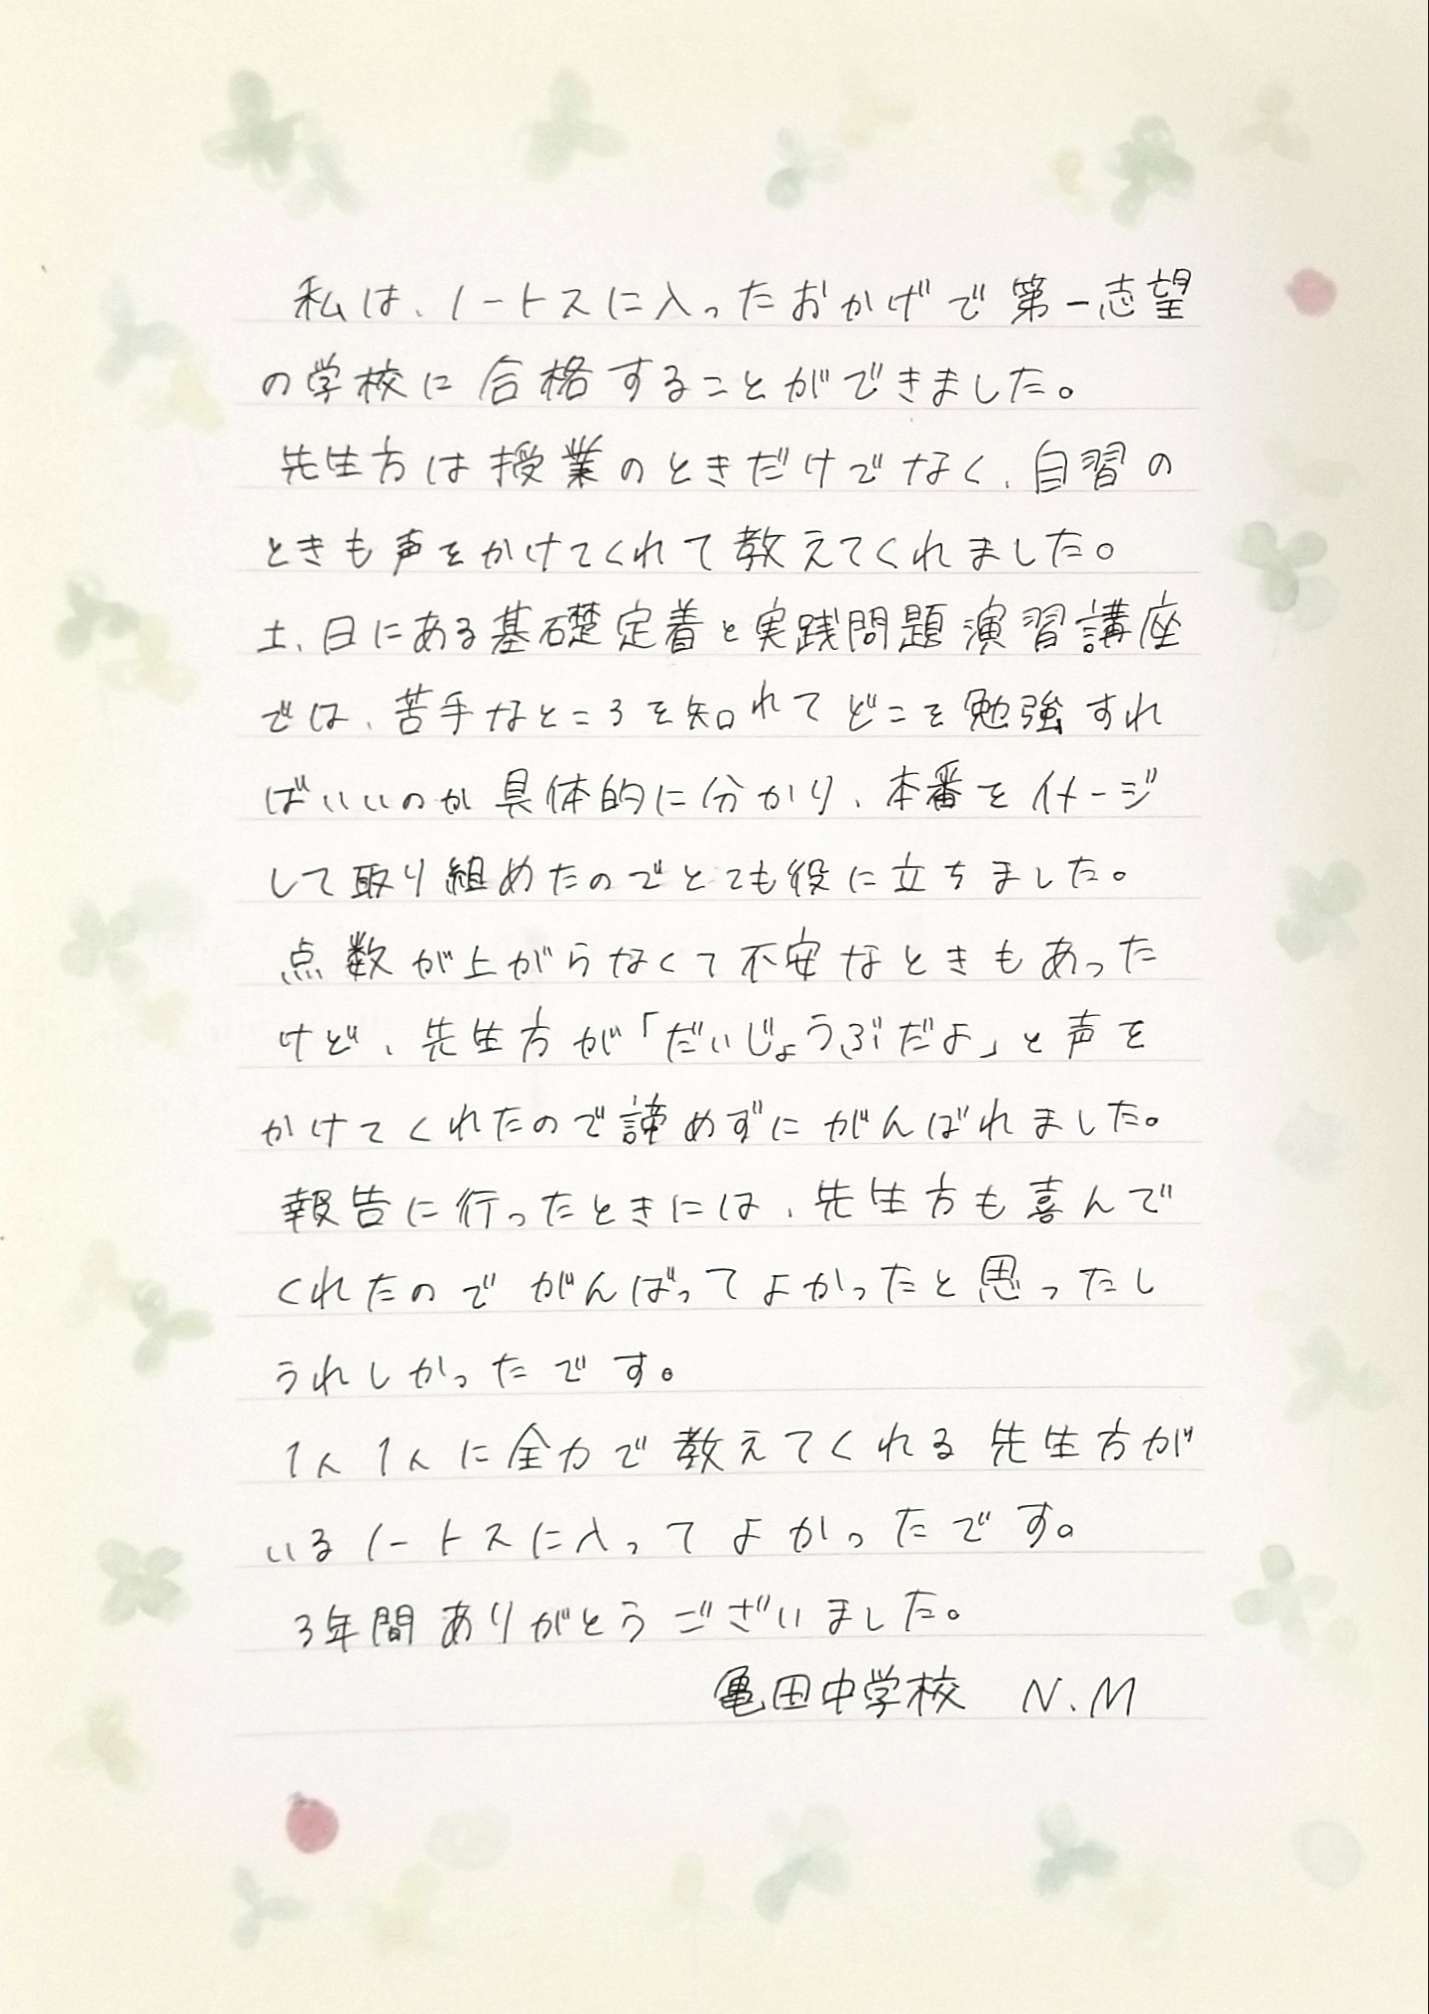 私は、ノートスに入ったおかげで第一志望
の学校に合格することができました。
先生方は授業のときだけでなく、自習の
ときも声をかけてくれて教えてくれました。
土、日にある基礎定着と実践問題演習講座
では、苦手なところを知れてどこを勉強すれ
ばいいのか具体的に分かり、本番をイメージ
して取り組めたのでとても役に立ちました。
点数が上がらなくて不安なときもあった
けど、先生方が「だいじょうぶだよ」と声を
かけてくれたので諦めずにがんばれました。
報告に行ったときには、先生方も喜んで
くれたのでがんばってよかったと思ったし
うれしかったです。
1人1人に全力で教えてくれる先生方が
いるノートスに入ってよかったです。
3年間ありがとうございました。
亀田中学校 N.M